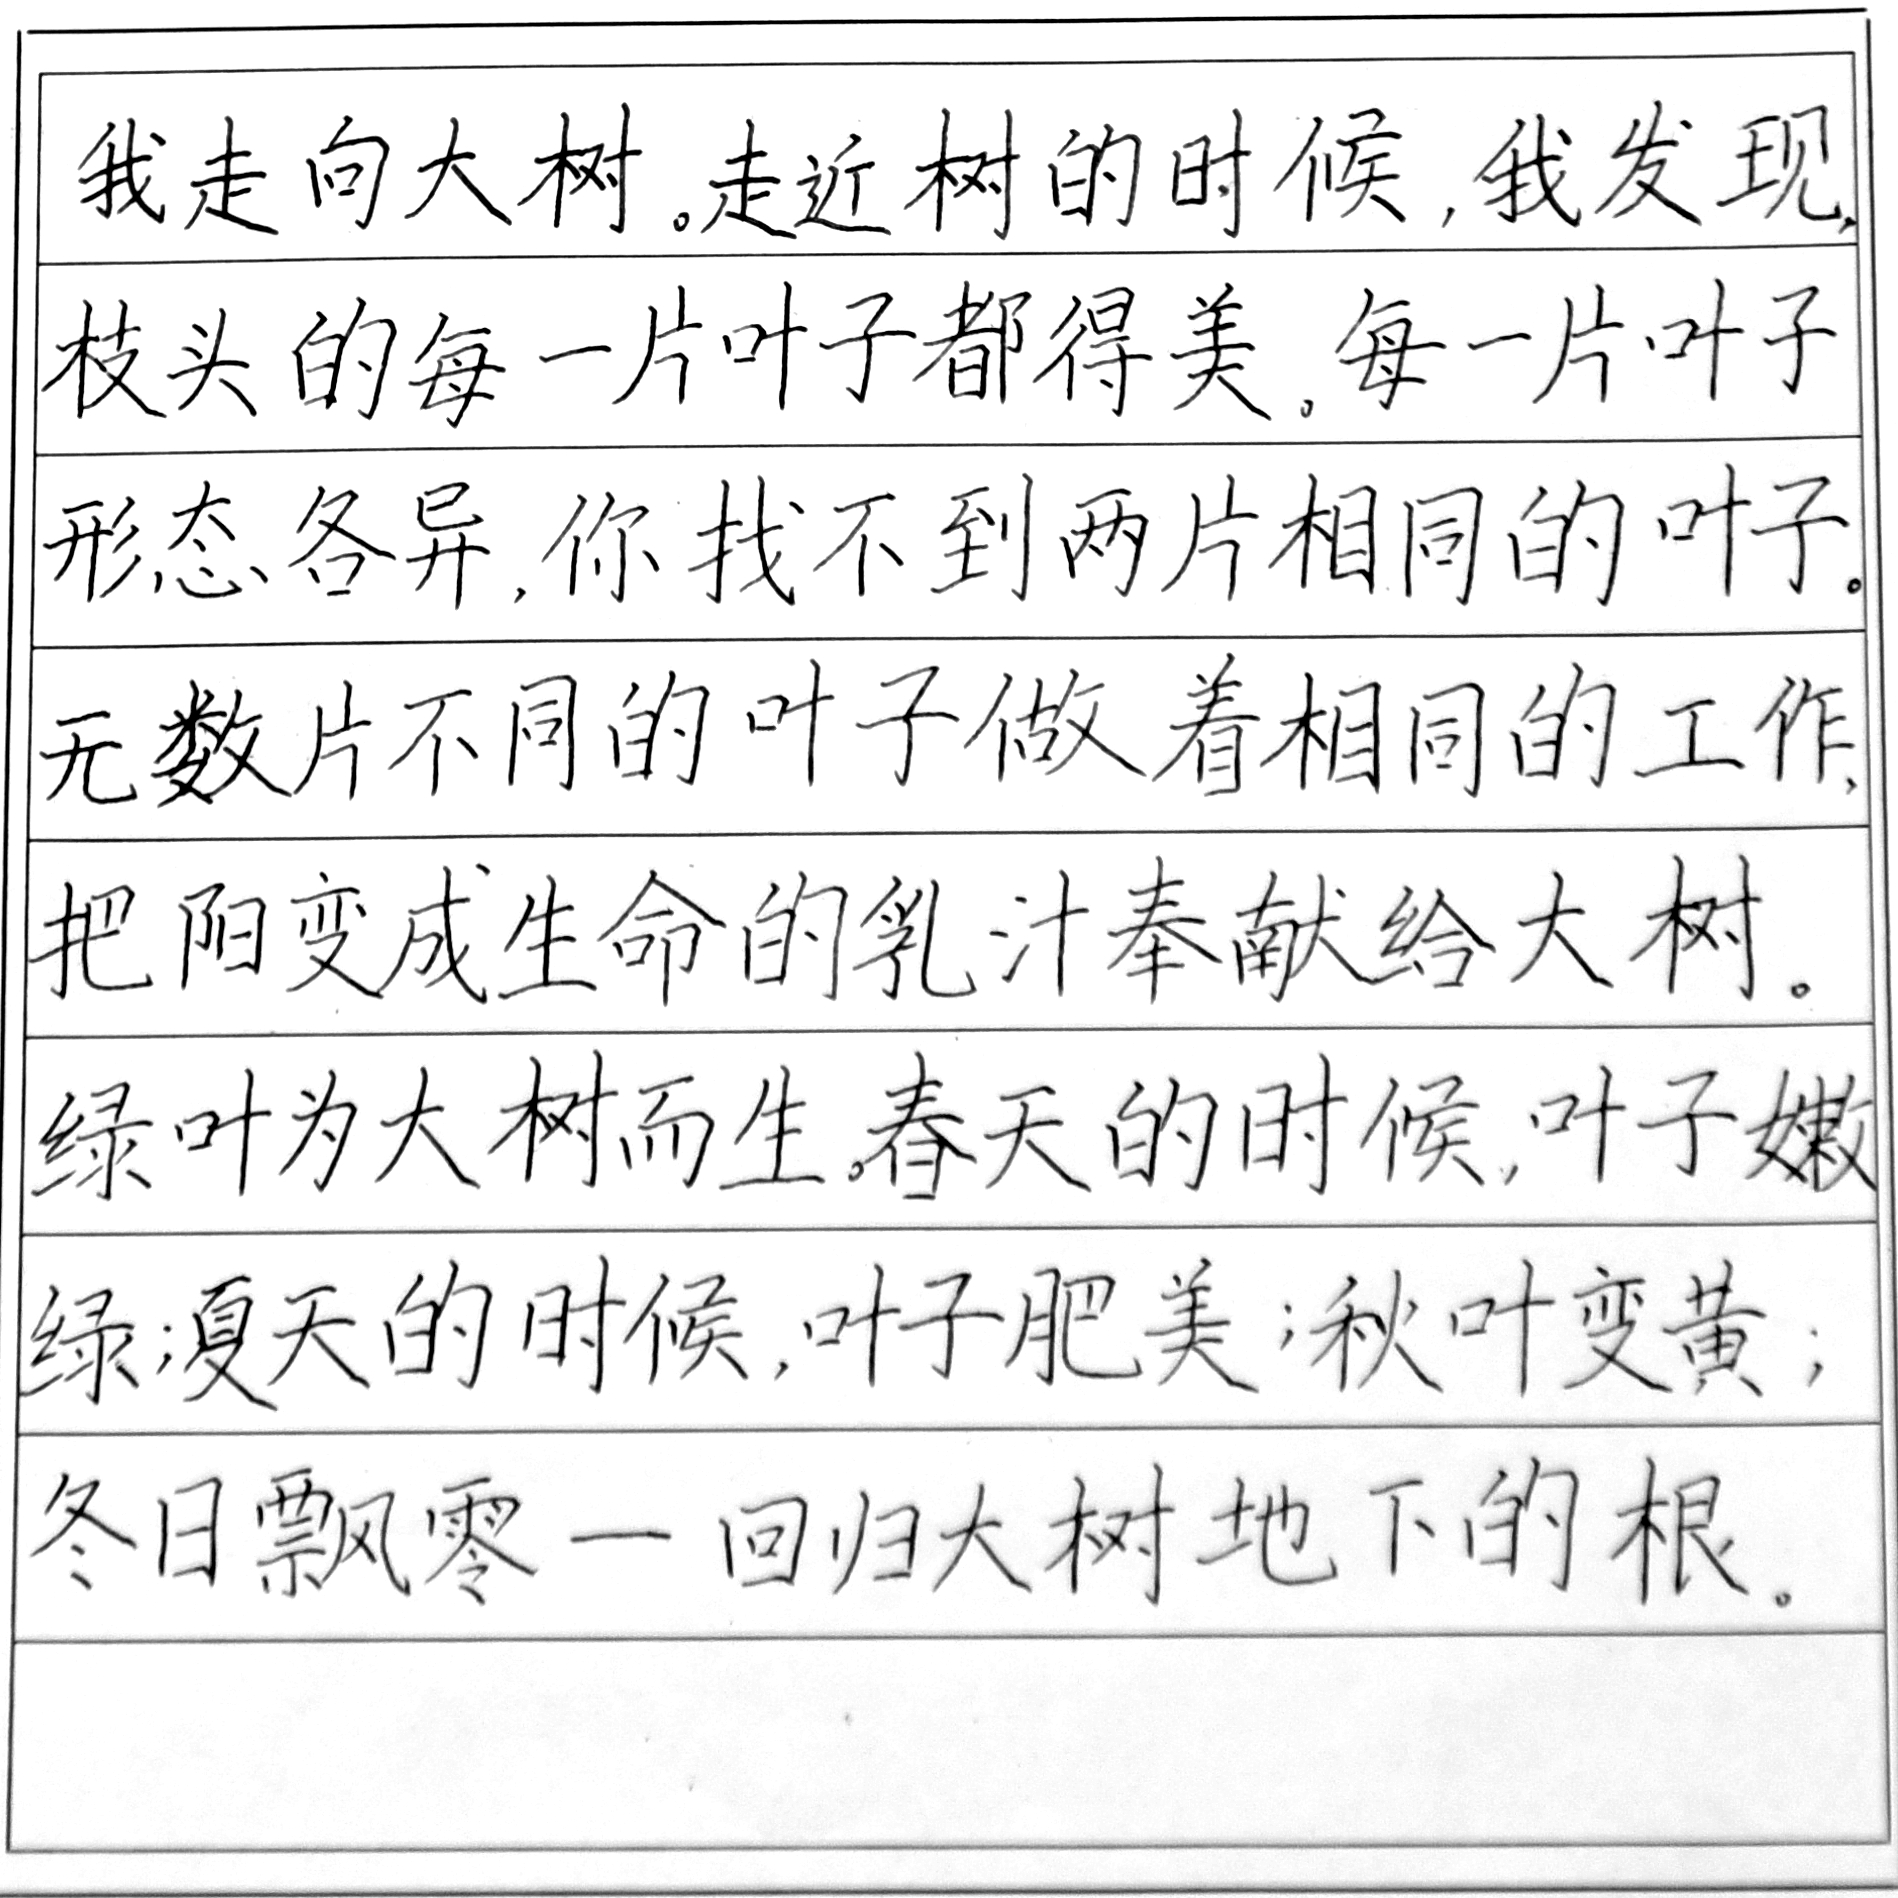 我走向大树。走近树的时候，我发现，
枝头的每一片叶子都得美。每一片叶子
形态各异，你找不到两片相同的叶子。
无数片不同的叶子做着相同的工作，
把阳变成生命的乳汁奉献给大树。
绿叶为大树而生。春天的时候，叶子嫩
绿；夏天的时候，叶子肥美；秋叶变黄；
冬日飘零—回归大树地下的根。